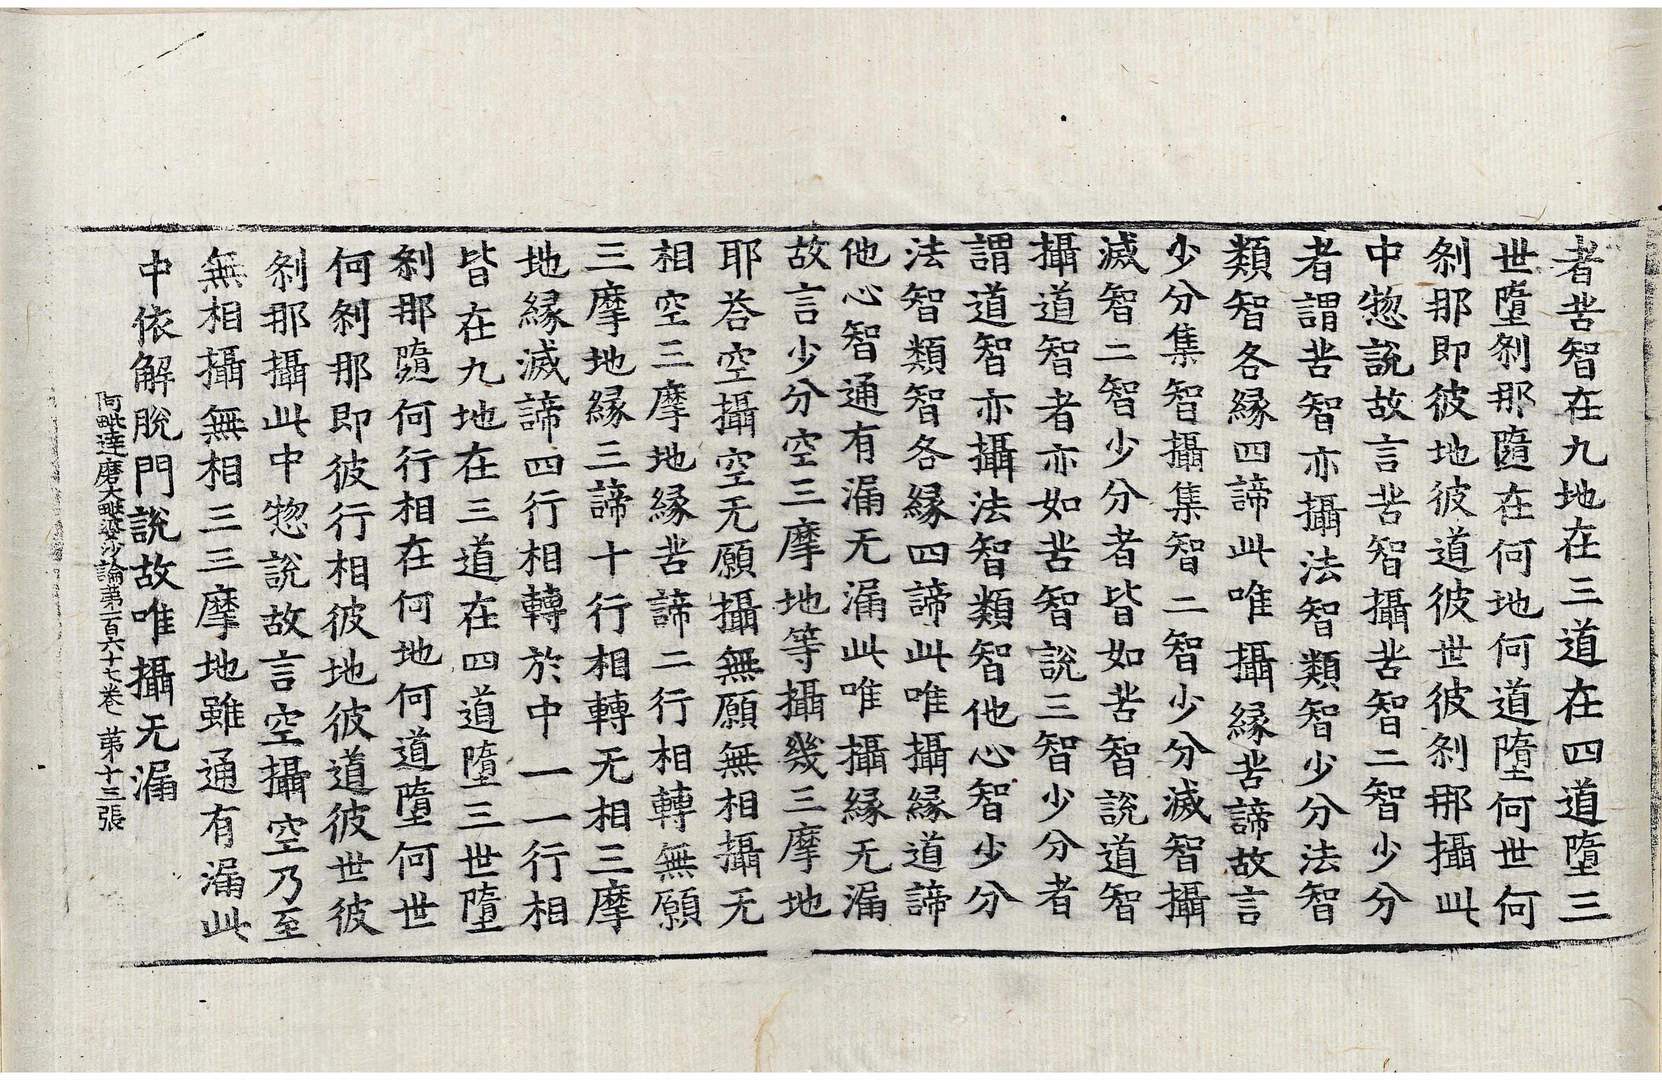 者苦智在九地在三道在四道墮三
世墮刹那墮在何地何道墮何世何
刹那即彼地彼道彼世彼刹那攝此
中惣說故言苦智攝苦智二智少分
者謂苦智亦攝法智類智少分法智
類智各緣四諦此唯攝緣苦諦故言
少分集智攝集智二智少分滅智攝
滅智二智少分者皆如苦智說道智
攝道智者亦如苦智說三智少分者
謂道智亦攝法智類智他心智少分
法智類智各緣四諦此唯攝緣道諦
他心智通有漏无漏此唯攝緣无漏
故言少分空三摩地等攝幾三摩地
耶荅空攝空无願攝無願無相攝无
相空三摩地緣苦諦二行相轉無願
三摩地緣三諦十行相轉无相三摩
地緣滅諦四行相轉於中一一行相
皆在九地在三道在四道墮三世墮
刹那墮何行相在何地何道墮何世
何刹那即彼行相彼地彼道彼世彼
刹那攝此中惣說故言空攝空乃至
無相攝無相三三摩地雖通有漏此
中依解脫門說故唯攝无漏
阿毗達磨大毗婆沙論第一百六十七卷 第十三張